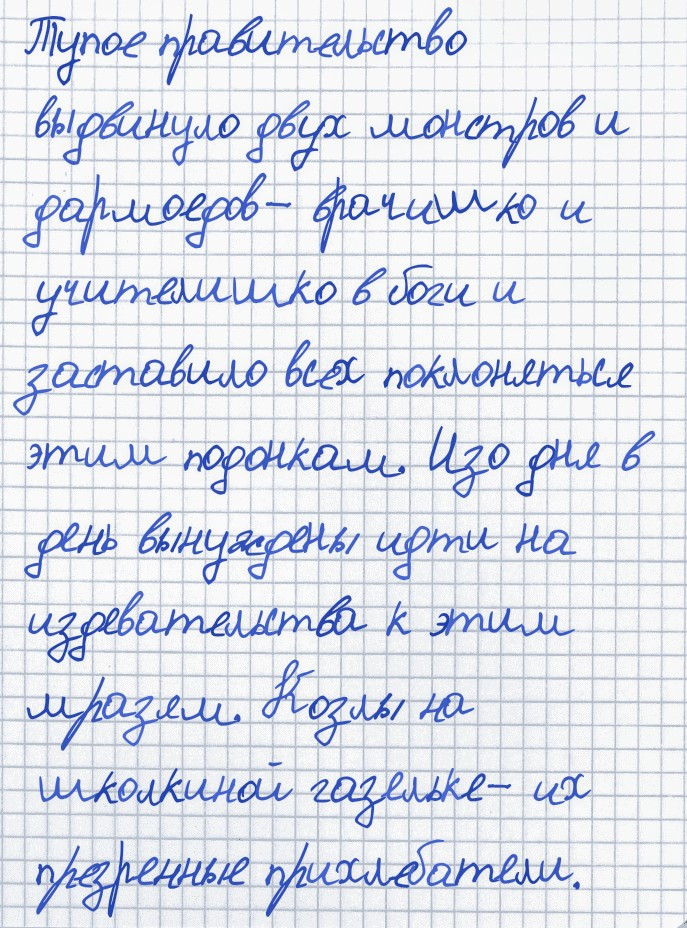 Тупое правительство
выдвинуло двух монстров и
дармоедов- врачишко и
учителишко в боги и
заставило всех поклоняться
этим подонкам. Изо дня в
день вынуждены идти на
издевательства к этим
мразям. Козлы на
школкиной газельке- их
презренные прихлебатели.